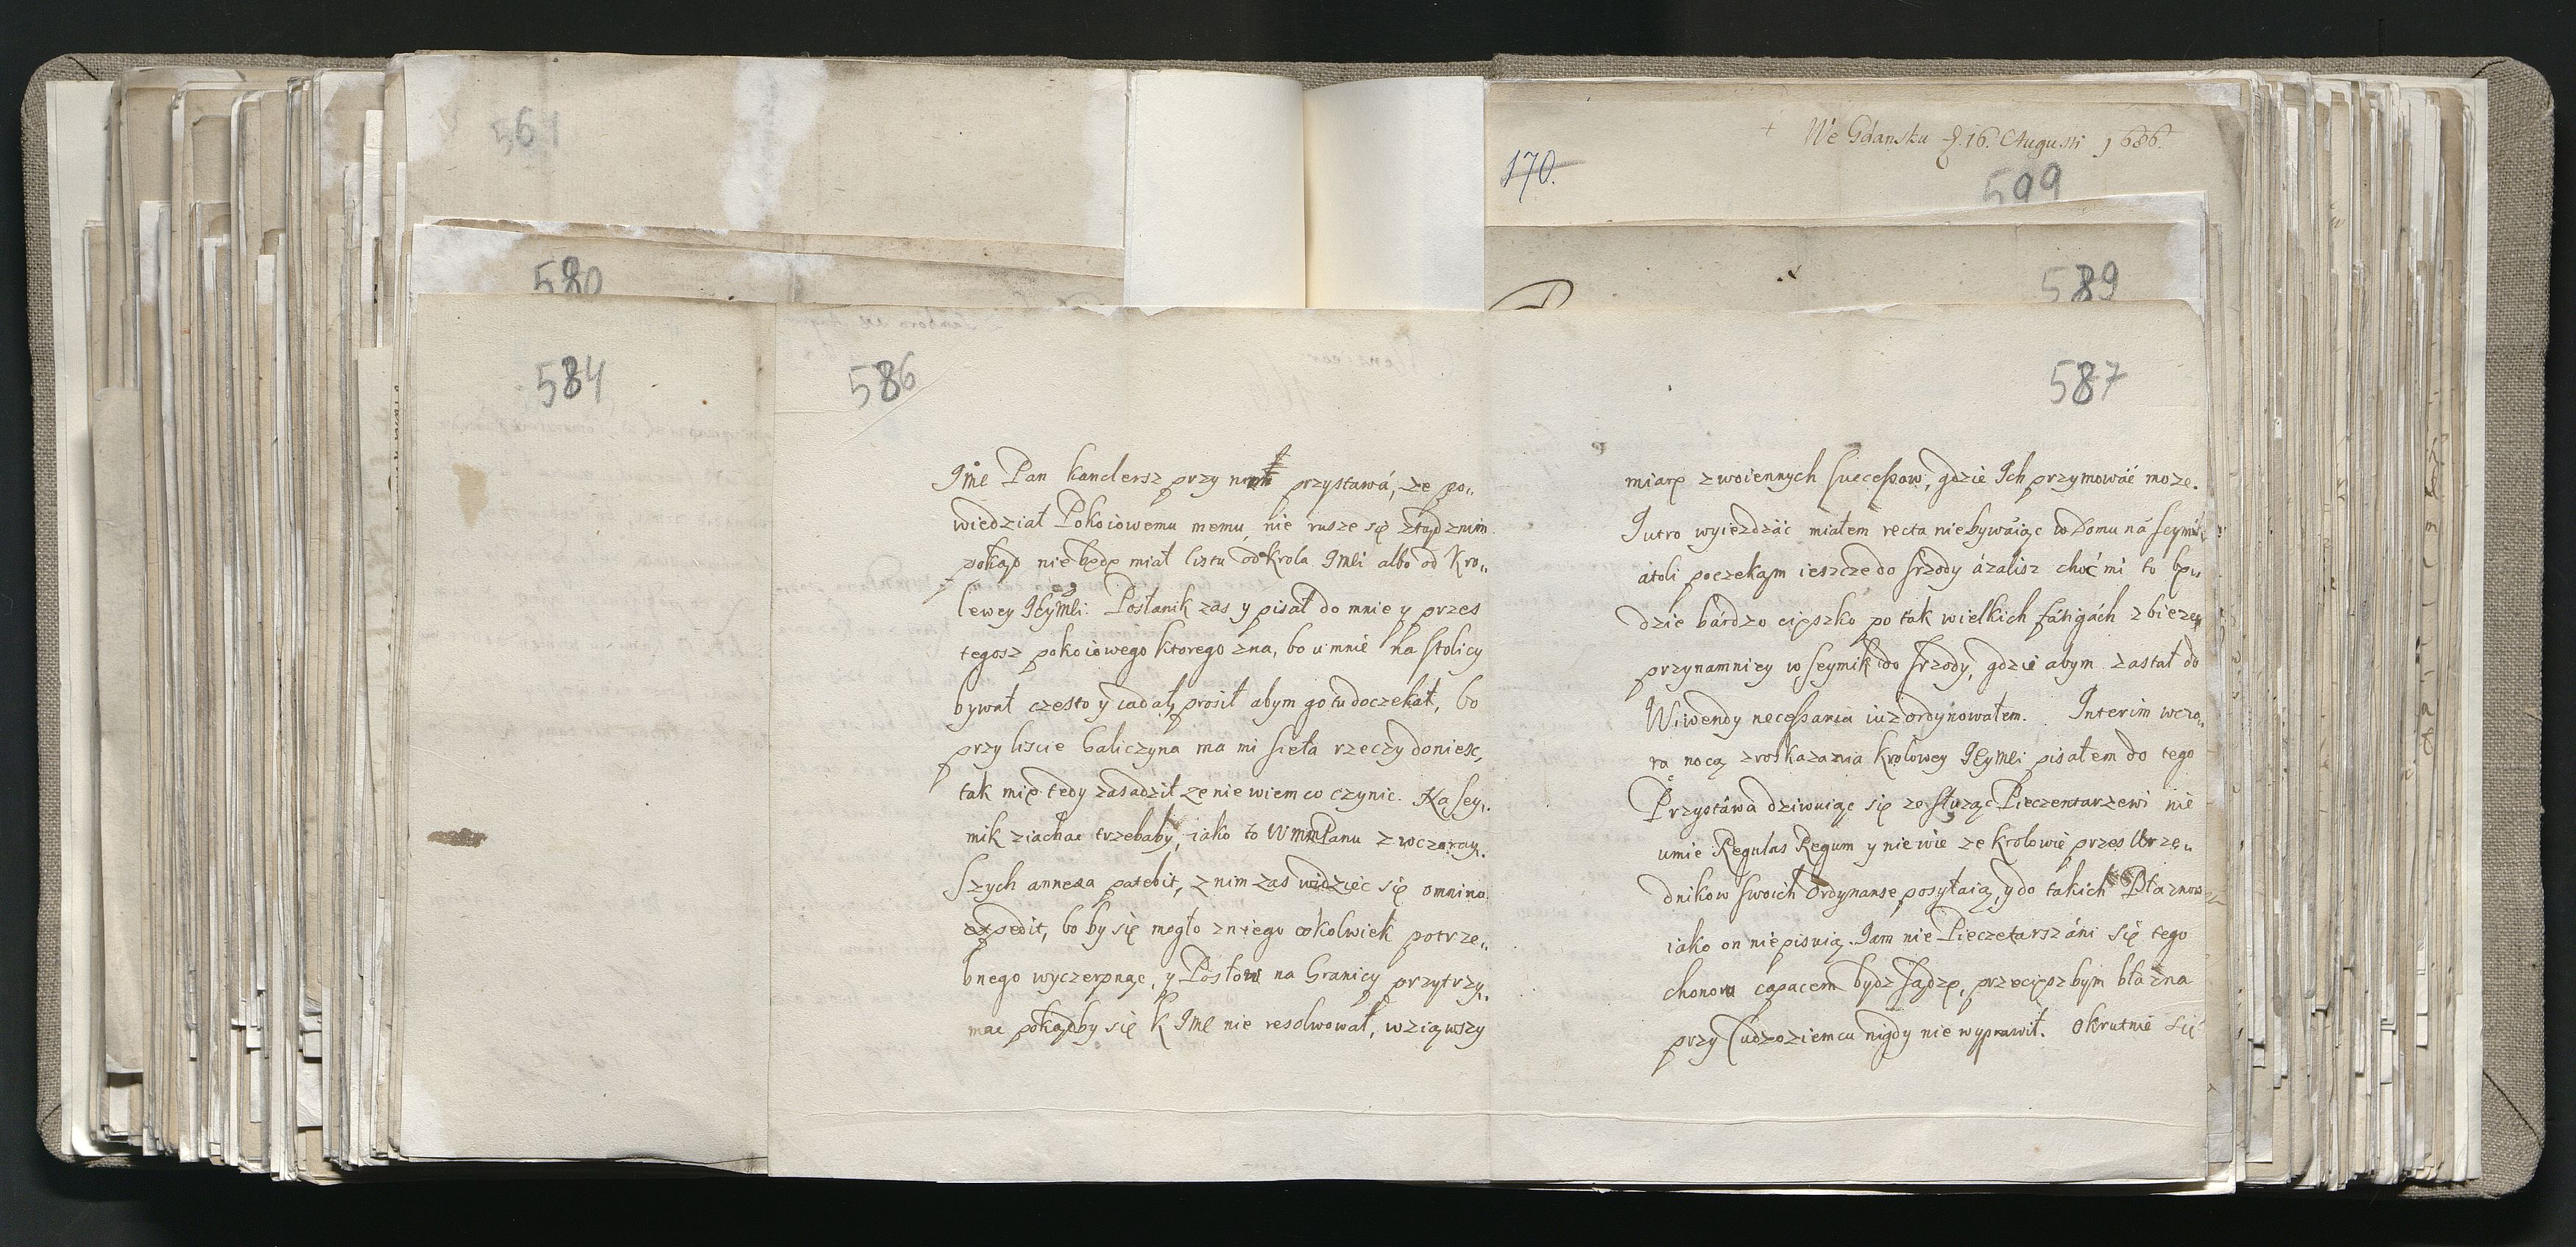 561
580
584
586
Jme Pan kanclersz przy nim przystawá, ze po„
wiedział Pokoiowemu memu, nie rusze się ztąd znim
pokąd nie będę miał listu od krola Jmći albo od Kro„
lewey JEymći. Posłanik zas y pisał do mnie y przes
tegosz pokoiowego ktorego zna, bo u mnie na stolicy
bywał czesto y iadał, prosił abym go tu doczekał, bo
przy liscie Galiczyna ma mi sieła rzeczy doniesc,
tak mię tedy zasadził ze nie wiem co czynic. Na sey„
mik ziachac trzebaby, iako to WmmPanu z wczoray„
szych annexa patebit, z nim zas widziec się omnino
expedit, bo by się mogło z niego cokolwiek potrze„
bnego wyczerpnąc, y Posłow na Granicy przytrzy„
mac pokądby się K Jmć nie resolwował, wziąwszy
170.
+ We Gdansku d. 16. Augusti 1686.
599
589
587
miarę z woiennych successow, gdzie Ich przymowáć może.
Jutro wyiezdzáć miałem recta nie bywáiąc w Domu ná seymik
átoli poczekąm ieszcze do srzody ázalisz choć mi to bę„
dzie bárdzo cięszko po tak wielkich fátigách zbieżę
przynamniey w seymik do srzody, gdzie abym zastał do
Wiwendy necessaria iuz ordynowałem. Interim wczo„
ra nocą z roskazania krolowey JEymći pisałem do tego
Przystáwa dziwuiąc się ze służąc Pieczentarzewi nie
umie Regulas Regum y nie wie ze krolowie przes Urzę„
dnikow swoich Ordynanse posyłaią, y do takich Błaznow
iako on nie pisuią. Jam nie Pieczetarsz áni się tego
chonoru capacem bydz sądzę, przecięsz bym błazna
przy Cudzoziemcu nigdy nie wyprawił. Okrutnie się